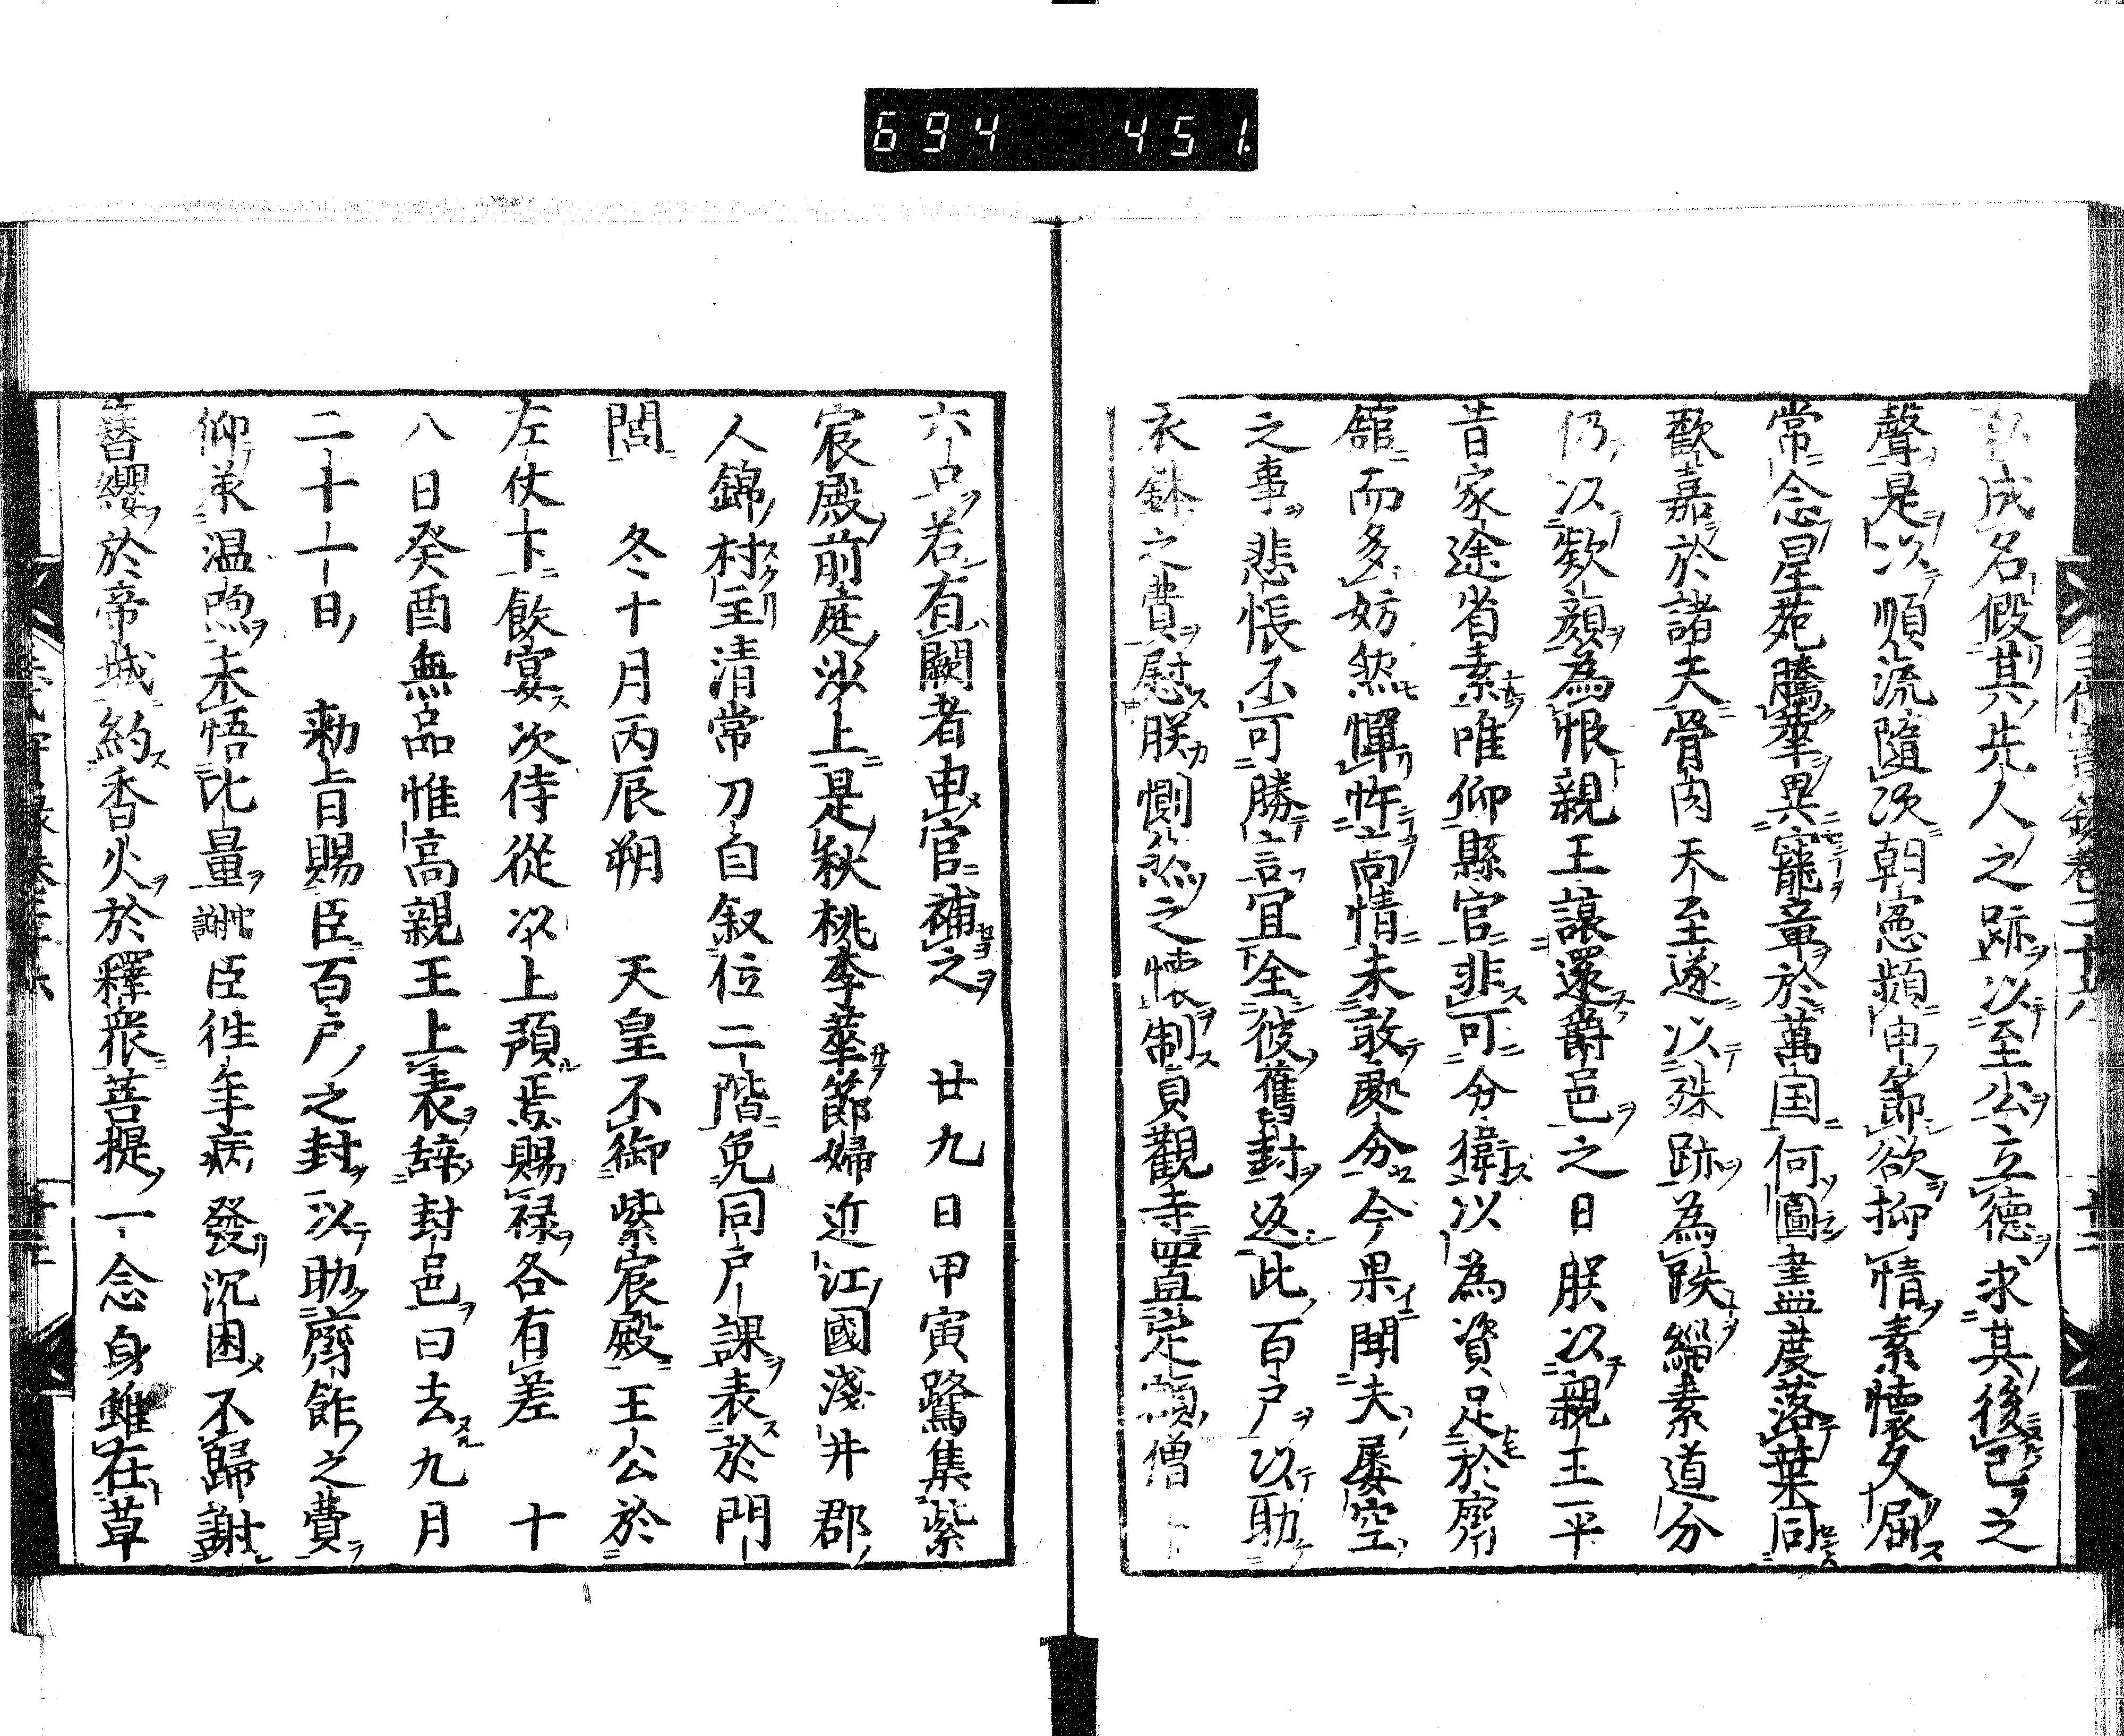 694 451.
成名假其先人之跡以至公立德求其後已之
聲是以順流隨次朝憲頻申節欲抑情素懐久屈
常念星苑騰華異寵章於萬国何圖盡度落葉同
歡嘉於諸夫骨肉天至遂以殊跡為跌緇素道分
仍以欵顔為恨親王譲還爵邑之日朕以親王平
昔家途省素唯仰縣官非可分衛以為資足於齋
舘而多妨然憚忤尚情未敢處分今果聞夫屡空
之事悲悵丕可勝言冝全彼舊封返此百戸以助
衣鉢之費慰朕惻然之懐制貞觀寺置定額僧
六口若有闕者申官補之　廿九日甲寅鷺集紫
宸殿前庭沙上是秋桃李華節婦近江國淺井郡
人錦村主清常刀自叙位二階免同戸課表於門
閭　冬十月丙辰朔　天皇不御紫宸殿王公於
左仗下飲宴次侍從以上預焉賜禄各有差　十
八日癸酉無品惟高親王上表辞封邑曰去九月
二十一日　勅旨賜臣百戸之封以助齋飯之費
仰承温煦未悟比量臣徃年病發沉困丕歸謝
簪纓於帝城約香火於釋衆菩提一念身雖在草